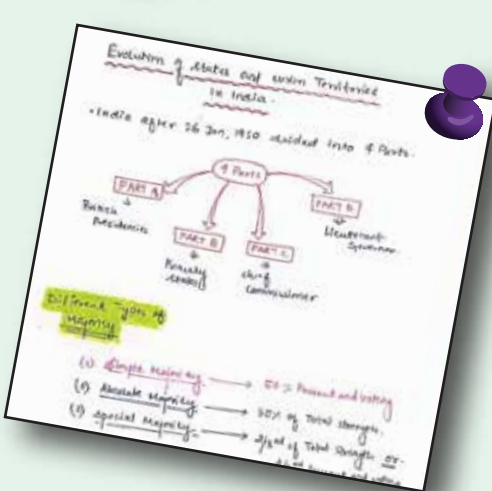 Evolution of states and union Territories
in India.
• India after 26 Jan, 1950 divided into 4 Parts.
4 Parts
PART A
PART B
PART C
PART D
British Presidencies
Princely States
chief commissioner
Lieutenant Governor
Different Types of
Majority
(1) Simple Majority → 50% Present and voting
(2) Absolute Majority → 50% of Total strength.
(3) Special Majority → 2/3rd of Total Strength or
present and voting